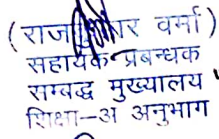 (राजकुमार वर्मा)
सहायक प्रबन्धक
सम्बद्ध मुख्यालय
शिक्षा-अ अनुभाग